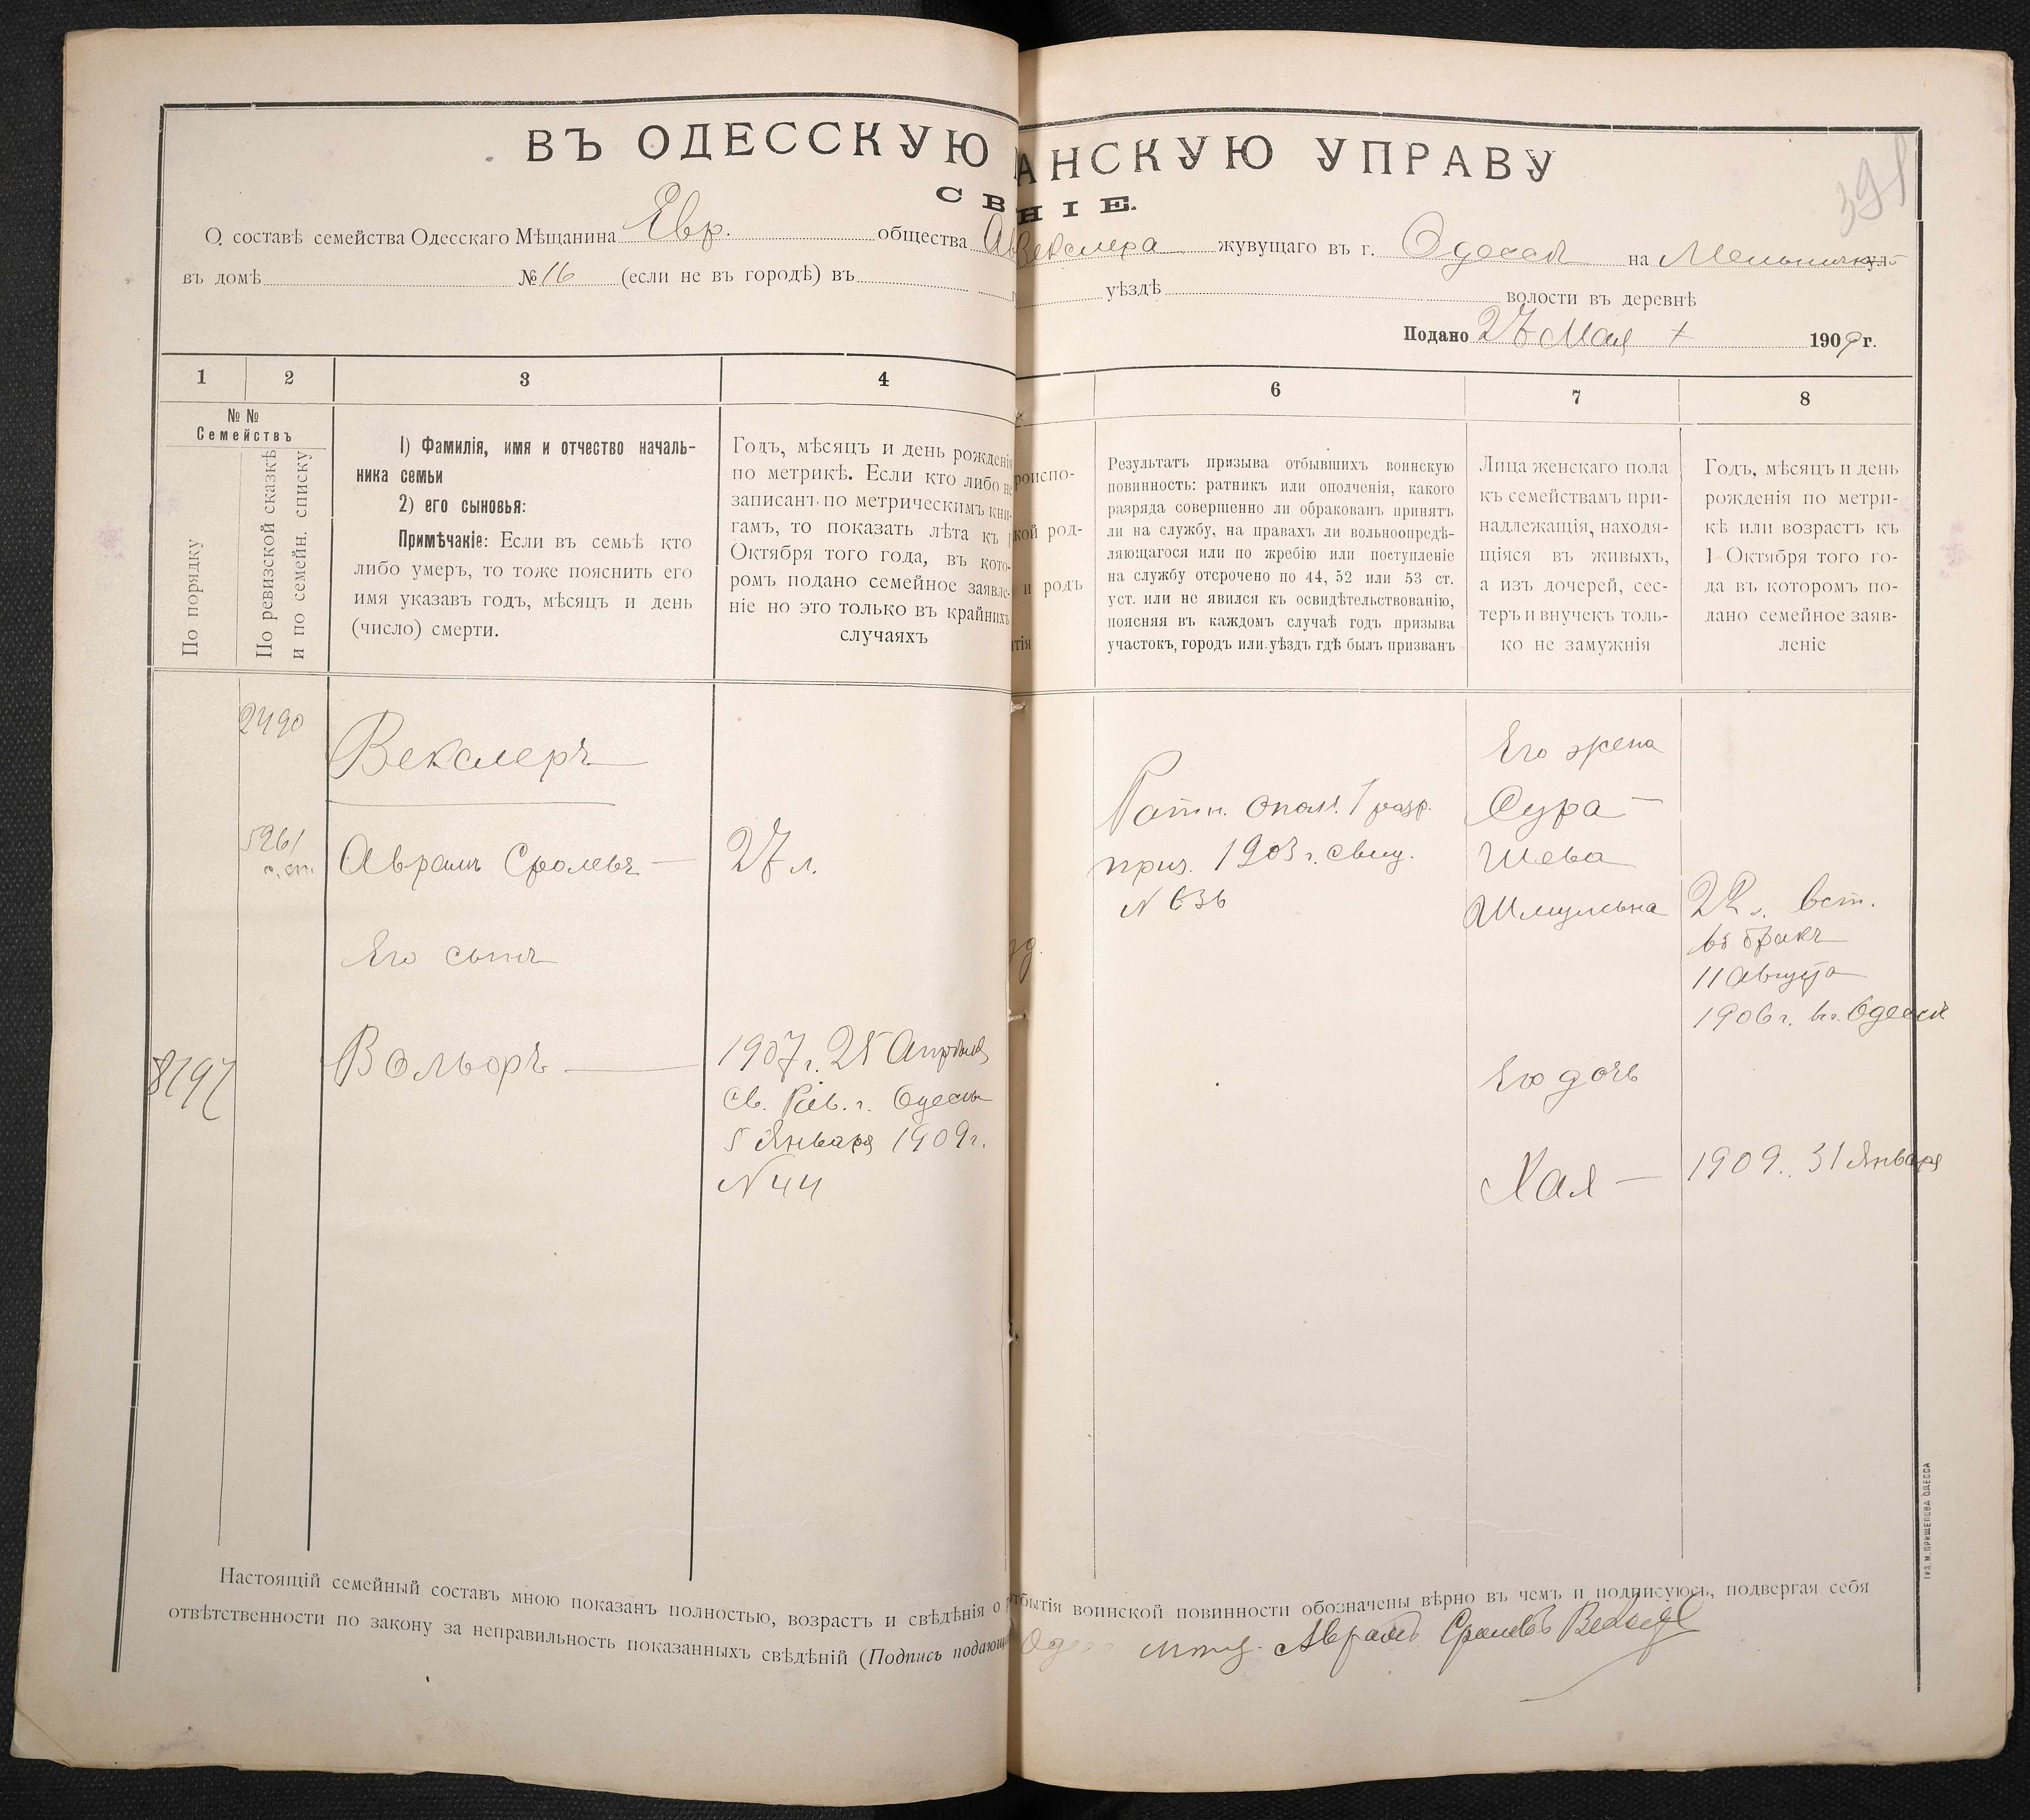 391
ВЪ ОДЕССКУЮ АНСКУЮ УПРАВУ
СВ НІЕ.
О составѣ семейства Одесскаго Мѣщанина Евр. общества Ав Векслера жувущаго въ г. Одессѣ на ул.
въ домѣ № 16 (если не въ городѣ) въ уѣздѣ волости въ деревнѣ
Подано 27 Мая 1909 г.
1 2 3 4 6 7 8
№ №
Семействъ
По порядку
По ревизской сказкѣ
и по семейн. списку
1) Фамилія, имя и отчество началь-
ника семьи
2) его сыновья:
Примѣчаніе: Если въ семьѣ кто
либо умеръ, то тоже пояснить его
имя указавъ годъ, мѣсяцъ и день
(число) смерти.
Годъ, мѣсяцъ и день рожденія
по метрикѣ. Если кто либо не
записанъ по метрическимъ кни-
гамъ, то показать лѣта къ 1
Октября того года, въ кото-
ромъ подано семейное заявле-
ніе но это только въ крайнихъ
случаяхъ
роиспо-
кой род-
и родъ
тія
Результатъ призыва отбывшихъ воинскую
повинность: ратникъ или ополченія, какого
разряда совершенно ли обракованъ принятъ
ли на службу, на правахъ ли вольноопредѣ-
ляющагося или по жребію или поступленіе
на службу отсрочено по 44, 52 или 53 ст.
уст. или не явился къ освидѣтельствованію,
поясняя въ каждомъ случаѣ годъ призыва
участокъ, городъ или уѣздъ гдѣ былъ призванъ
Лица женскаго пола
къ семействамъ при-
надлежащія, находя-
щіяся въ живыхъ,
а изъ дочерей, сес-
теръ и внучекъ толь-
ко не замужнія
Годъ, мѣсяцъ и день
рожденія по метри-
кѣ или возрастъ къ
1 Октября того го-
да въ котором по-
дано семейное заяв-
леніе
2490
Векслеръ
5261
Аврамъ Сролевъ
27 л.
Его сынъ
8197
Вольфъ
1907 г. 25 Апрѣля
св. Рав. г. Одессы
5 Января 1909 г.
N 44
Ратн. опол. 1 разр.
приз. 1903 г. свид.
N 636
Его жена
Сура
Шева
Шмулевна
22 л. вст.
въ бракъ
11 Августа
1906 г. въ Одессѣ
Его дочь
Хая
1909. 31 Января
Настоящій семейный составъ мною показанъ полностью, возрастъ и свѣдѣнія о тбытія воинской повинности обозначены вѣрно въ чемъ и подписуюсь, подвергая себя
отвѣтственности по закону за неправильность показанныхъ свѣдѣній (Подпись подающ Аврамъ Сролевъ Векслеръ
ТИП. М. ПРИЩЕПОВА ОДЕССА